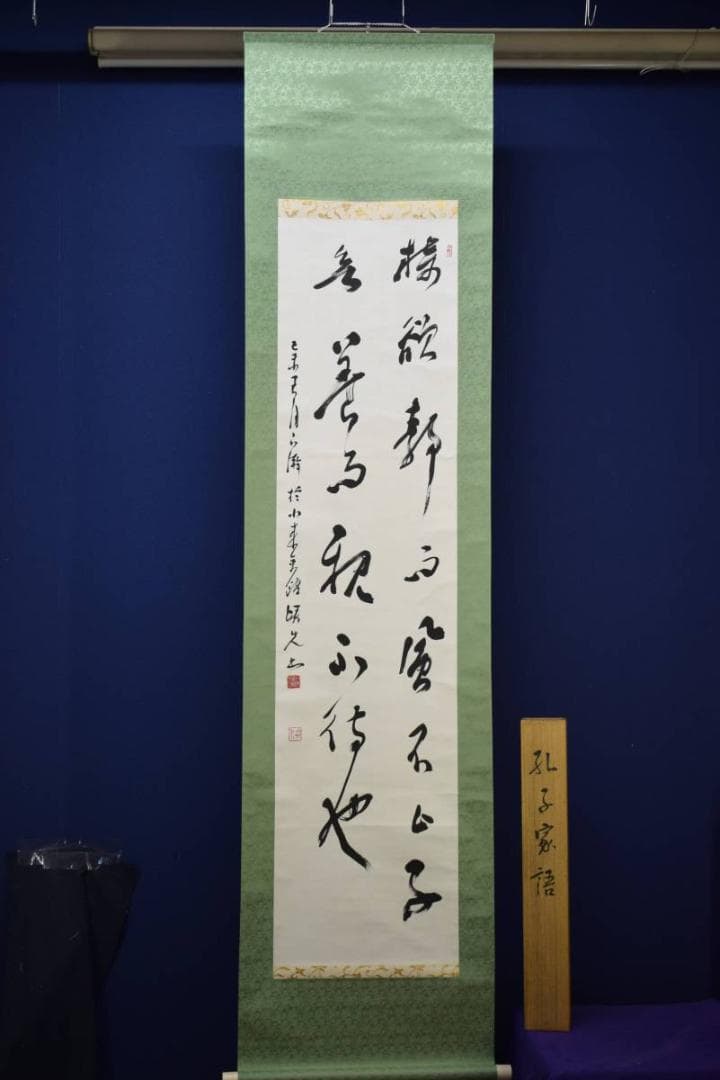 樹欲靜而風不止子
欲養而親不待也
己未
於小
孔子家語